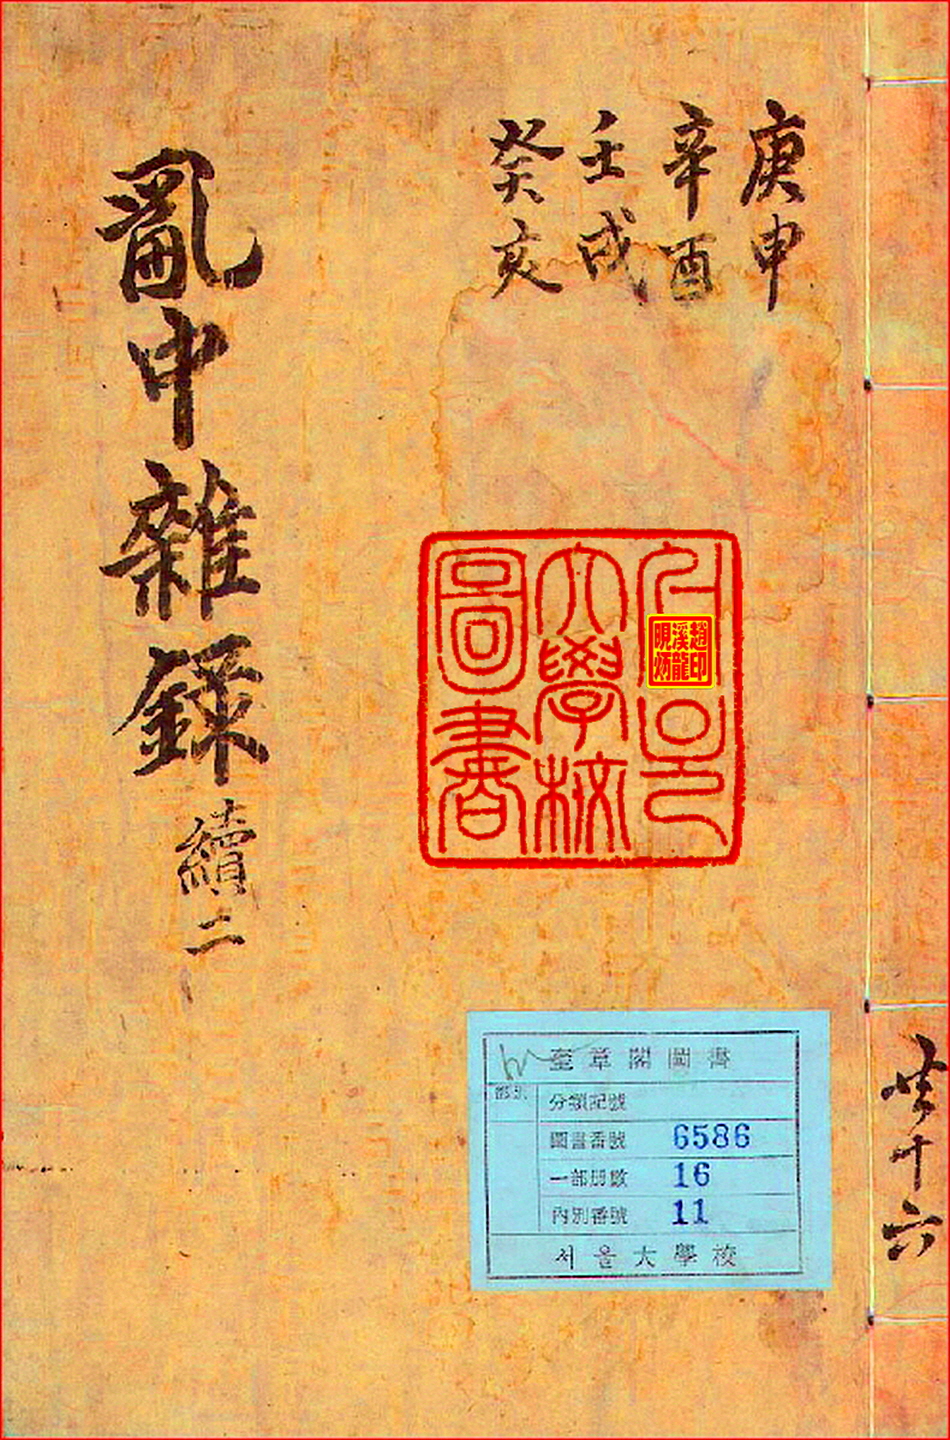 庚申
辛酉
壬戌
癸亥
亂中雜錄 續二
서울
大學校
圖書
趙印
溪龍
奎章閣圖書
部別
分類記號
圖書番號 6586
一部册數 16
內別番號 11
서울大學校
共十六